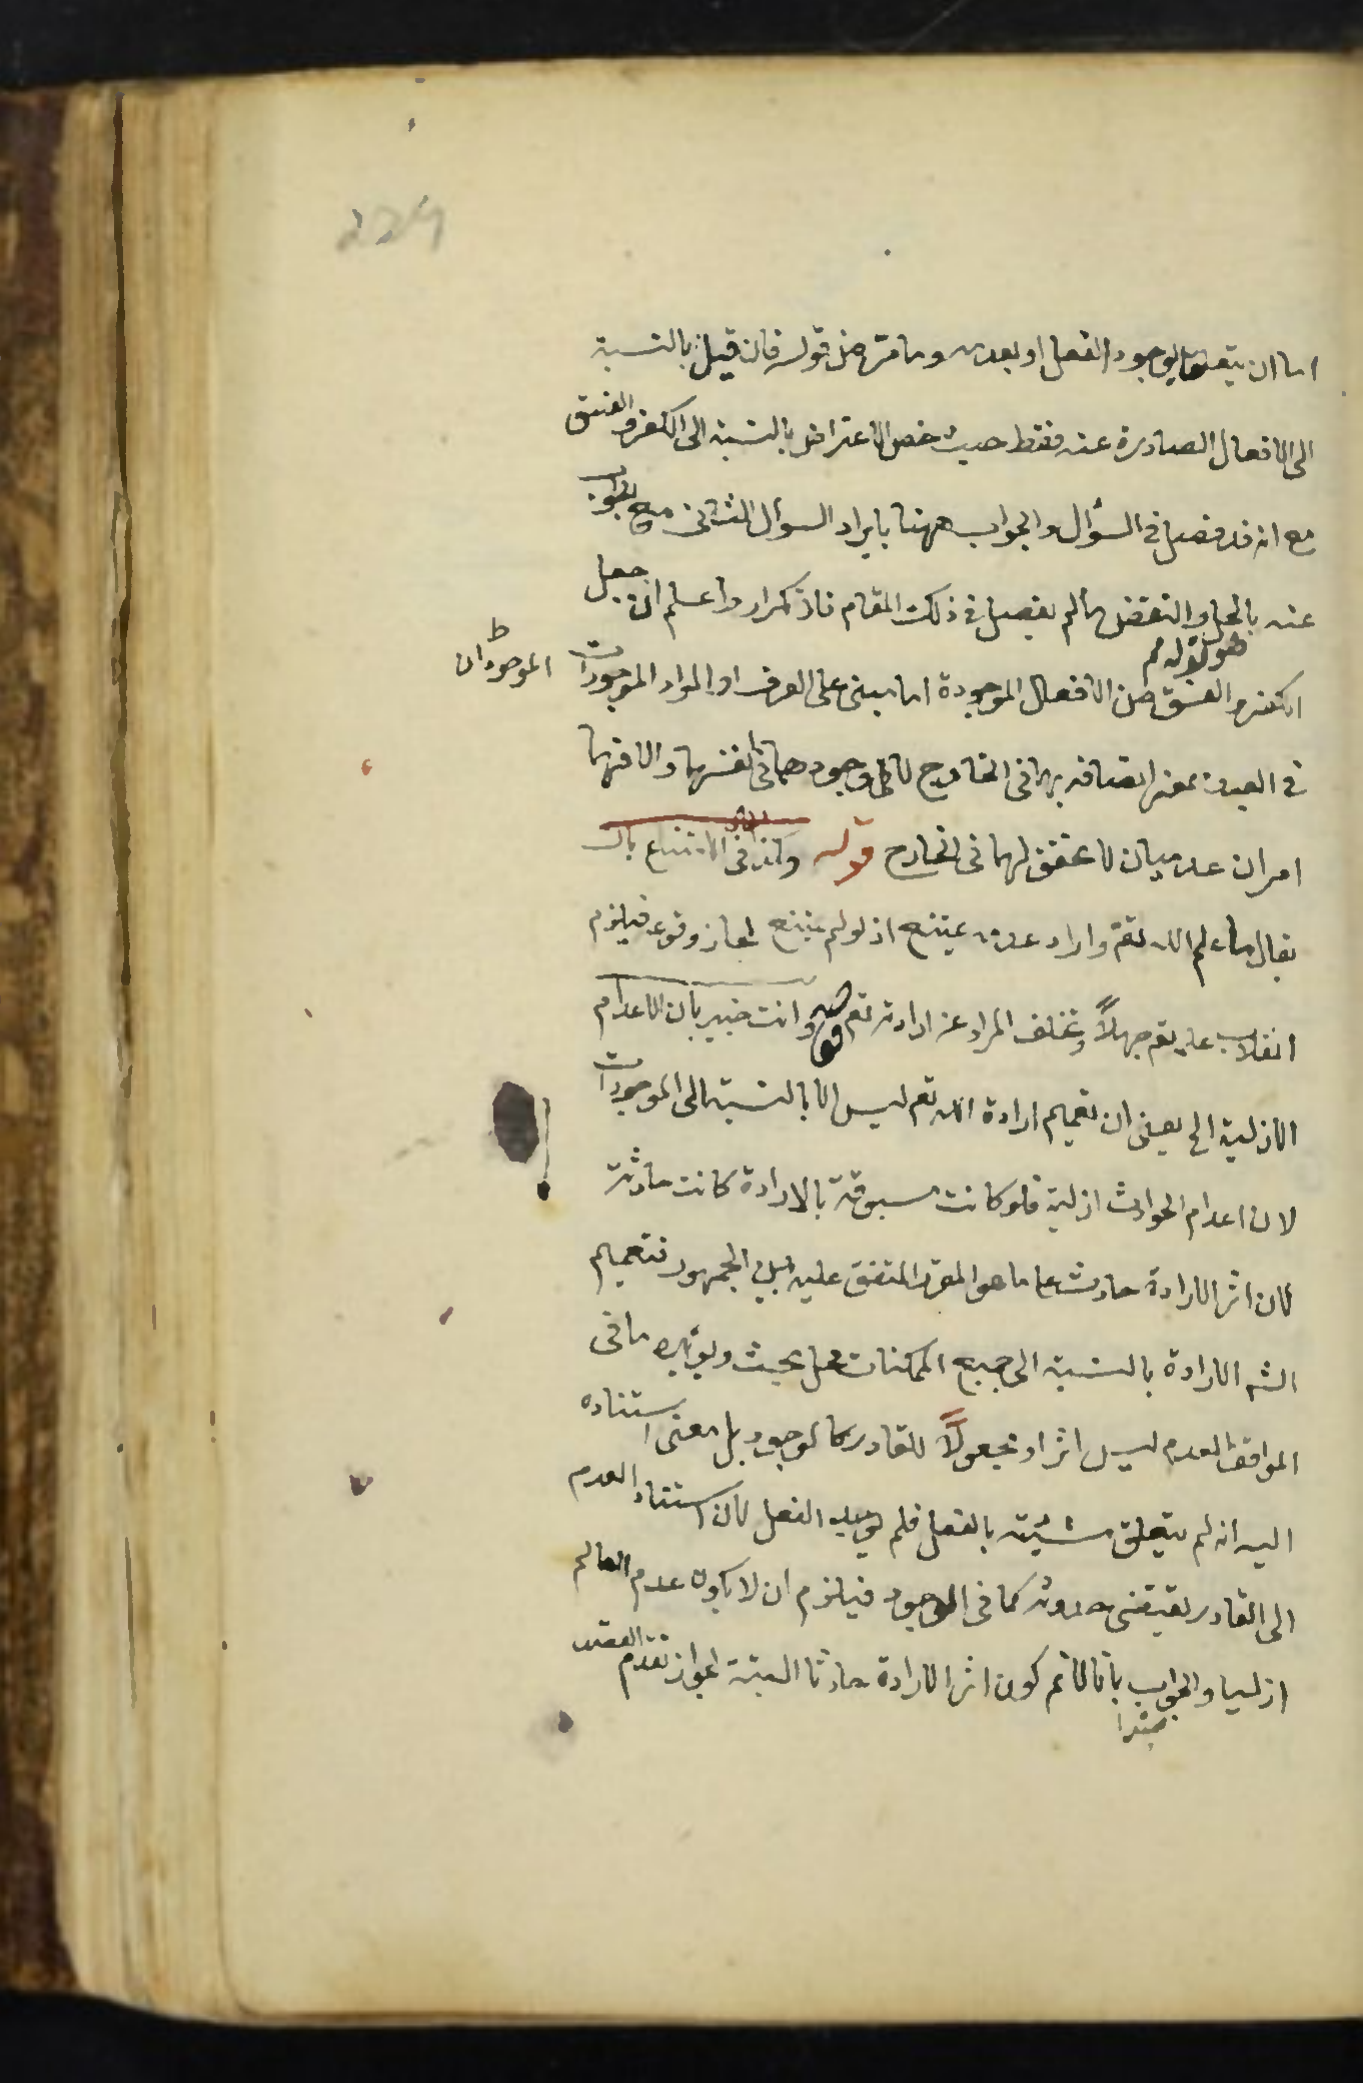 اما ان يتعلق بوجود الفعل او بعدمه وما مر من قوله فان قيل بالنسبة
الى الافعال الصادرة عنه فقط حيث خص الاعتراض بالنسبة الى الكفر والفسق
مع انه قد فصل في السؤال والجواب ههنا بايراد السؤال الثاني مع الجواب
عنه بالحل والنقض ما لم يفصل في ذلك المقام فلا تكرار واعلم ان جعل
الكفر والفسق من الافعال الموجودة اما مبنى على العرف او المراد الموجودات
الموجودان ط
في العبد بمعنى اتصافه بهما في الخارج لا وجودهما في انفسهما والا فهما
امران عدميان لا تحقق لهما في الخارج قوله وكذا في الامتناع بان
يقال ما علم الله تعم واراد عدمه يمتنع اذ لو لم يمتنع لجاز وقوعه فيلزم
انقلاب علمه تعم جهلاً وتخلف المراد عن ارادته تعم قوله وانت خبير بان الاعدام
الازلية الخ يعنى ان تعميم ارادة الله تعم ليس الا بالنسبة الى الموجودات
لان اعدام الحوادث ازلية فلو كانت مسبوقة بالارادة كانت حادثة
لان اثر الارادة حادث على ما هو المقرر المتفق عليه بين الجمهور فتعميم
الش الارادة بالنسبة الى جميع الممكنات محل بحث ويؤيده ما في
المواقف العدم ليس اثرا مجعولاً للقادر كالوجود بل معنى استناده
اليه انه لم يتعلق مشيئته بالفعل فلم يوجد الفعل لان استناد العدم
الى القادر يقتضى حدوثه كما في الوجود فيلزم ان لا يكون عدم العالم
ازليا والجواب بانا لا نم كون اثر الارادة حادثا البتة لجواز تقدم القصد